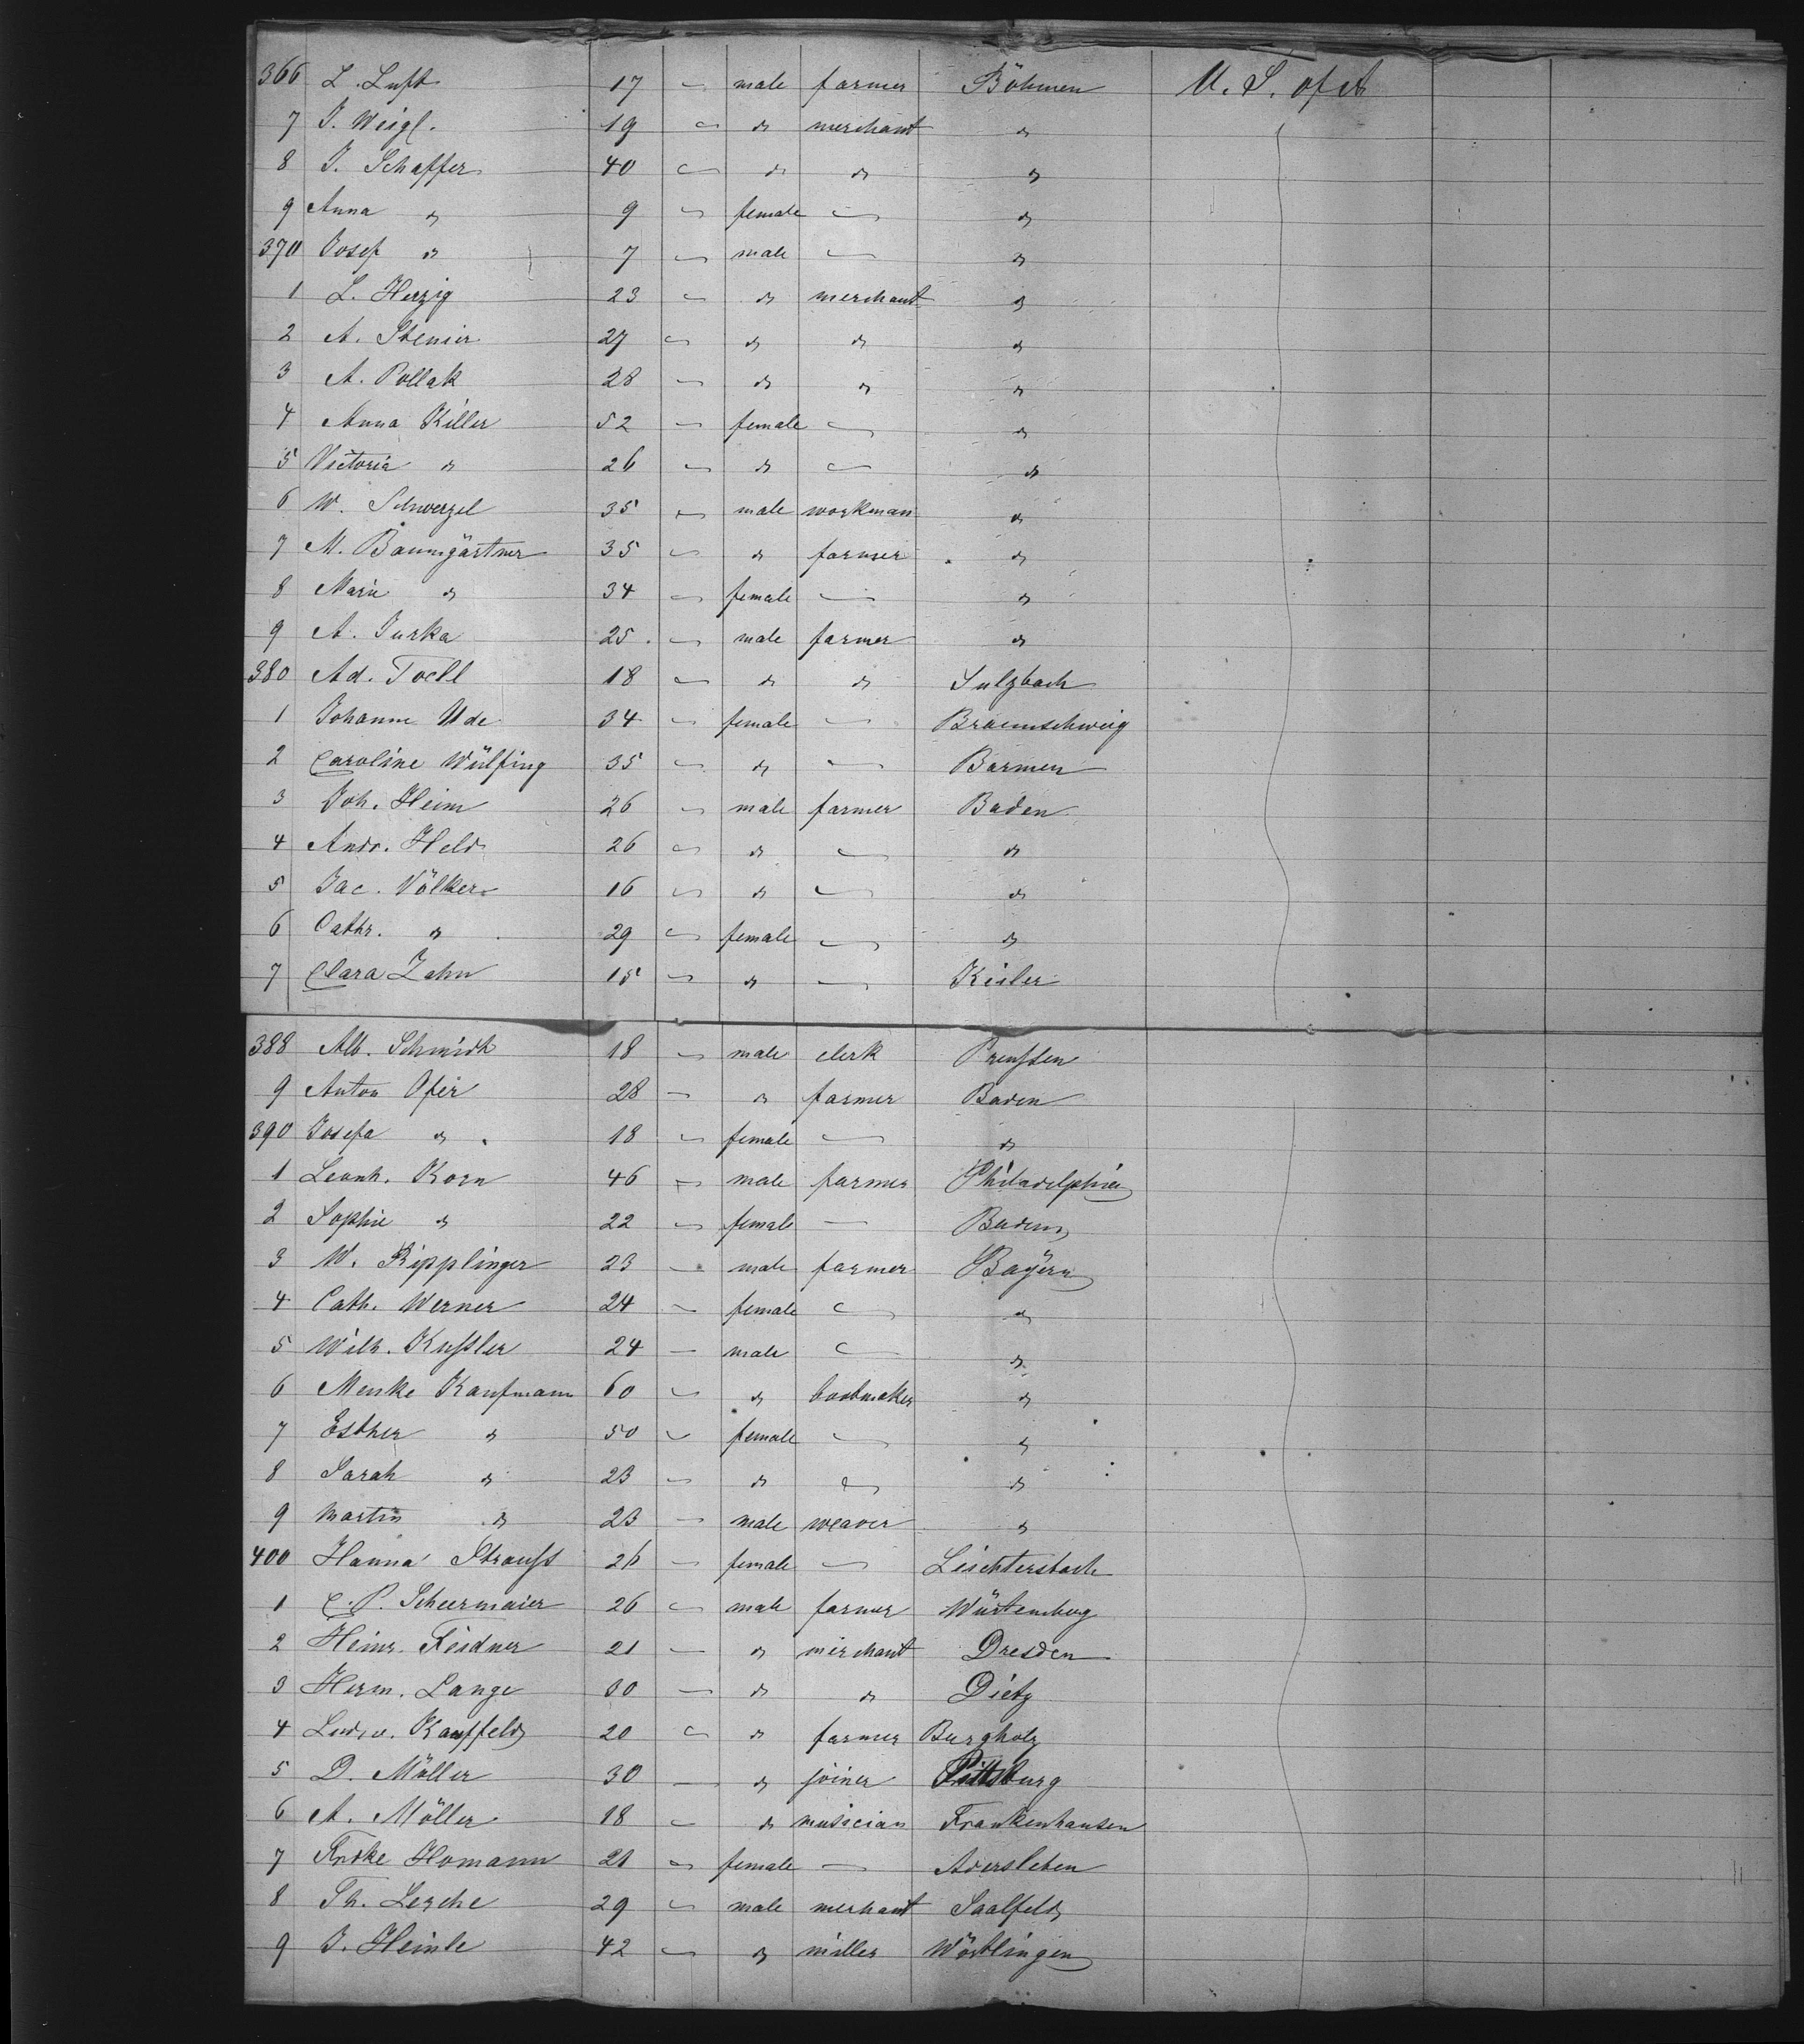 366 L. Luft 17 — male farmer Böhmen U. S. of A
7 J. Weigl. 19 — " merchant "
8 J. Schaffer 40 — " " "
9 Anna " 9 — female — "
370 Josef " 7 — male — "
1 L. Herzig 23 — " merchant "
2 A. Stenier 27 — " " "
3 A. Pollak 28 — " " "
4 Anna Killer 52 — female — "
5 Victoria " 26 — " — "
6 W. Schwerzel 35 — male workman "
7 M. Baumgärtner 35 — " farmer "
8 Marie " 34 — female — "
9 A. Jurka 25 — male farmer "
380 Ad. Toell 18 — " " Sulzbach
1 Johanne Ude 34 — female — Braunschweig
2 Caroline Wülfing 35 — " — Barmen
3 Joh. Heim 26 — male farmer Baden
4 Andr. Held 26 — " — "
5 Jac. Völker 16 — " — "
6 Cathr. " 29 — female — "
7 Clara Zahn 15 — " — Kisler
388 Alb. Schmidt 18 — male clerk Preußen
9 Anton Ofer 28 — " farmer Baden
390 Josefa " 18 — female — "
1 Leonh. Korn 46 — male farmer Philadelphia
2 Sophie " 22 — female — Baden
3 W. Ripplinger 23 — male farmer Bayern
4 Cath. Werner 24 — female — "
5 Wilh. Kußler 24 — male — "
6 Menke Kaufmann 60 — " bootmaker "
7 Esther " 50 — female — "
8 Sarah " 23 — " — "
9 Martin " 23 — male weaver "
400 Hanna Strauß 26 — female — Leichtersbach
1 C. P. Scheermaier 26 — male farmer Würtemberg
2 Heinr. Feidner 21 — " merchant Dresden
3 Herm. Lange 30 — " " Dietz
4 Ludw. Kauffeld 20 — " farmer Burgholz
5 D. Möller 30 — " joiner Pittsburg
6 A. Möller 18 — " musician Frankenhausen
7 Frdke Homann 21 — female — Adersleben
8 Th. Lerche 29 — male merhant Saalfeld
9 J. Heinle 42 — " miller Wörtlingen